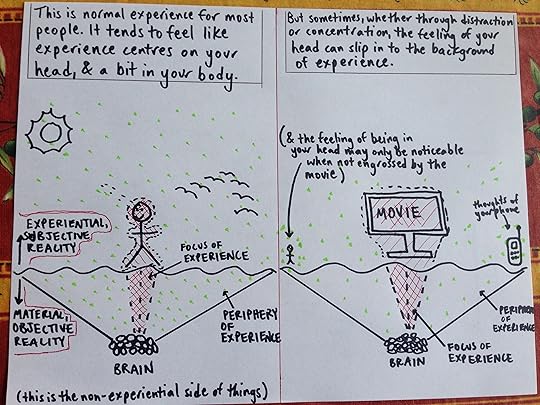 This is normal experience for most
people. It tends to feel like
experience centres on your
head, & a bit in your body.
EXPERIENTIAL,
SUBJECTIVE
REALITY
FOCUS OF
EXPERIENCE
MATERIAL,
OBJECTIVE
REALITY
PERIPHERY
OF
EXPERIENCE
BRAIN
(this is the non-experiential side of things)
But sometimes, whether through distraction
or concentration, the feeling of your
head can slip in to the background
of experience.
(& the feeling of being in
your head may only be noticeable
when not engrossed by the
movie)
MOVIE
thoughts of
your phone
PERIPHERY
OF
EXPERIENCE
FOCUS OF
EXPERIENCE
BRAIN